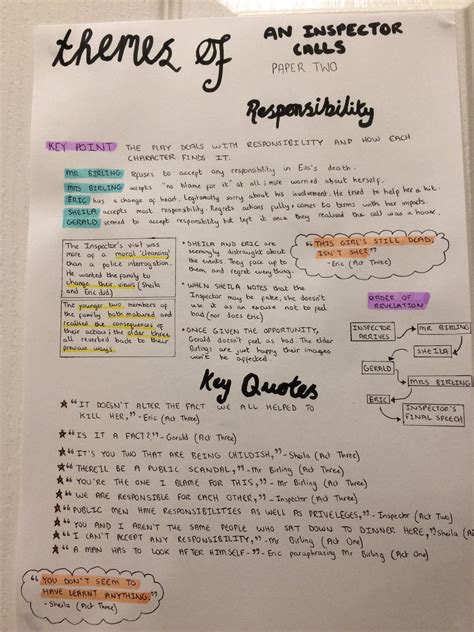 themes of
AN INSPECTOR
CALLS
PAPER TWO
Responsibility
KEY POINT THE PLAY DEALS WITH RESPONSIBILITY AND HOW EACH
CHARACTER FINDS IT.
MR BIRLING Refuses to accept any responsibility in Eva's death.
MRS BIRLING accepts "no blame for it" at all; more worried about herself.
ERIC has a change of heart. Legitimatly sorry about his involvement. He tried to help her a bit.
SHEILA accepts most responsibility. Regrets actions fully + comes to terms with her impacts.
GERALD seemed to accept responsibility but left it once they realised the call was a hoax.
The Inspector's visit was
more of a moral 'cleansing'
than a police interrogation.
He wanted the family to
change their views (Sheila
and Eric did)
The younger two members of
the family both matured and
realised the consequences of
their actions; the older three
all reverted back to their
previous ways.
• SHEILA AND ERIC are
seemingly distraught about
the works. They face up to
them, and regret everything.
• WHEN SHEILA NOTES that the
Inspector may be fake, she doesn't
use it as an excuse not to feel
bad (nor does Eric)
• ONCE GIVEN THE OPPORTUNITY,
Gerald doesn't feel as bad. The elder
Birlings are just happy their images
won't be affected.
"THIS GIRL'S STILL DEAD,
ISN'T SHE?"
- Eric (Act Three)
ORDER OF
REVELATION
INSPECTOR
ARRIVES
MR BIRLING
SHEILA
GERALD
MRS BIRLING
ERIC
INSPECTOR'S
FINAL SPEECH
Key Quotes
"IT DOESN'T ALTER THE FACT WE ALL HELPED TO
KILL HER," - Eric (Act Three)
"IS IT A FACT?" - Gerald (Act Three)
"IT'S YOU TWO THAT ARE BEING CHILDISH," - Sheila (Act Three)
"THERE'LL BE A PUBLIC SCANDAL," - Mr Birling (Act Three)
"YOU'RE THE ONE I BLAME FOR THIS," - Mr Birling (Act Three)
"WE ARE RESPONSIBLE FOR EACH OTHER," - Inspector (Act Three)
"PUBLIC MEN HAVE RESPONSIBILITIES AS WELL AS PRIVELEGES," - Inspector (Act Two)
"YOU AND I AREN'T THE SAME PEOPLE WHO SAT DOWN TO DINNER HERE," Sheila (Act
"I CAN'T ACCEPT ANY RESPONSIBILITY," - Mr Birling (Act One)
"A MAN HAS TO LOOK AFTER HIMSELF" - Eric paraphrasing Mr Birling (Act One)
"YOU DON'T SEEM TO
HAVE LEARNT ANYTHING,"
- Sheila (Act Three)